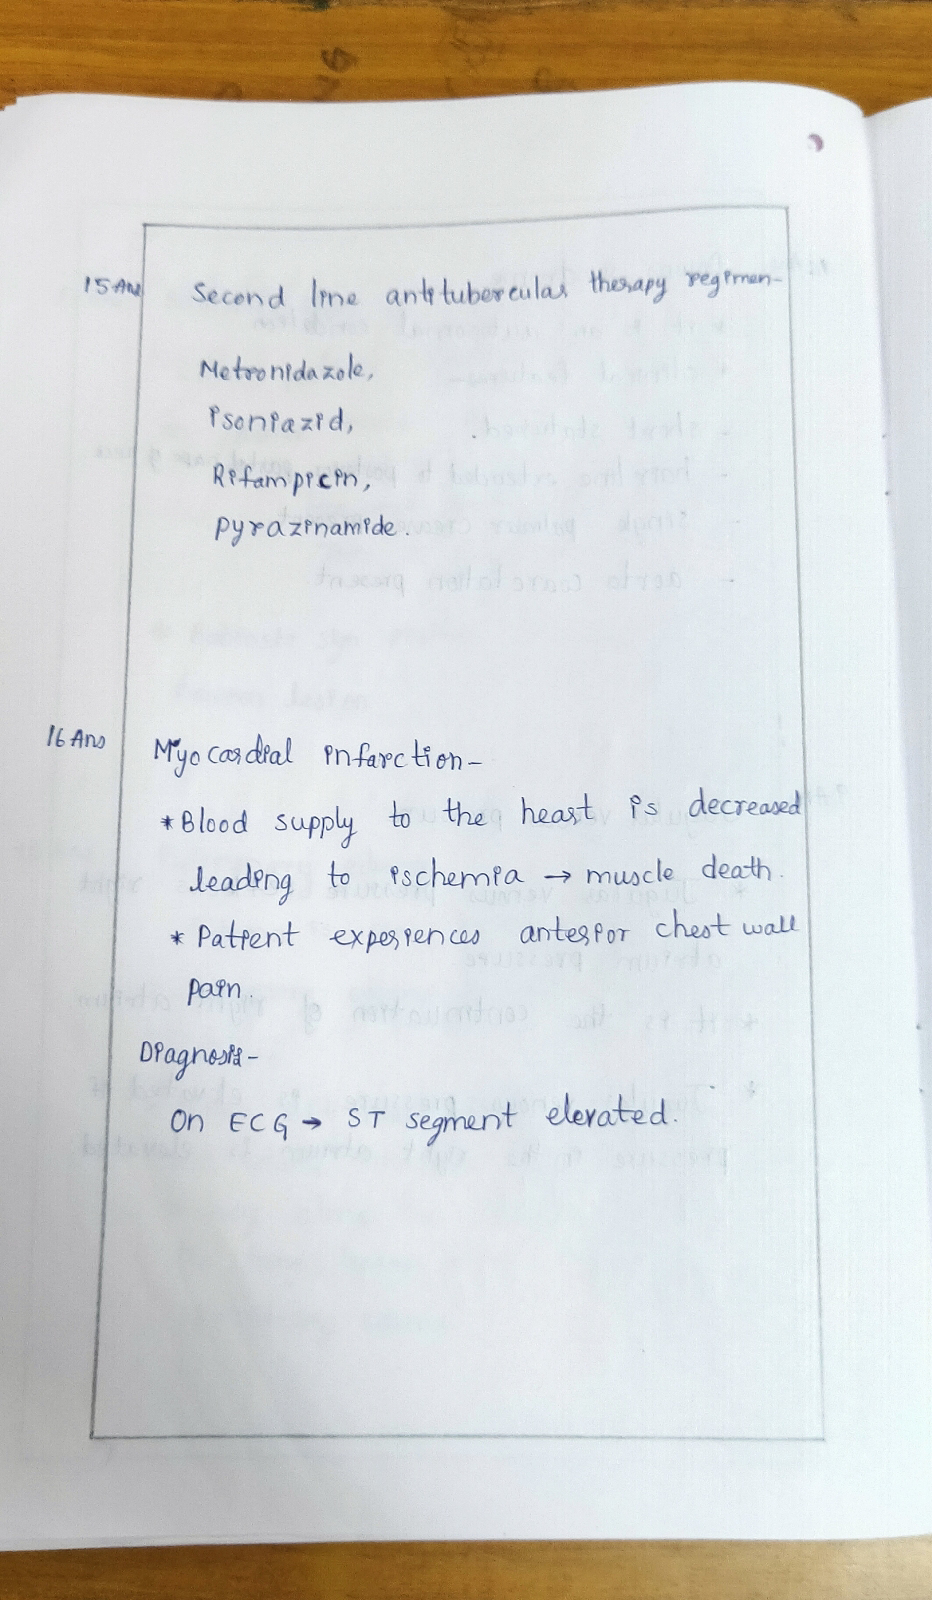 15 Ans
Second line antitubercular therapy regimen-
Metronidazole,
isoniazid,
Rifampicin,
pyrazinamide.
16 Ans
Myocardial infarction-
* Blood supply to the heart is decreased
leading to ischemia → muscle death.
* Patient experiences anterior chest wall
pain.
Diagnosis-
On ECG → ST segment elevated.